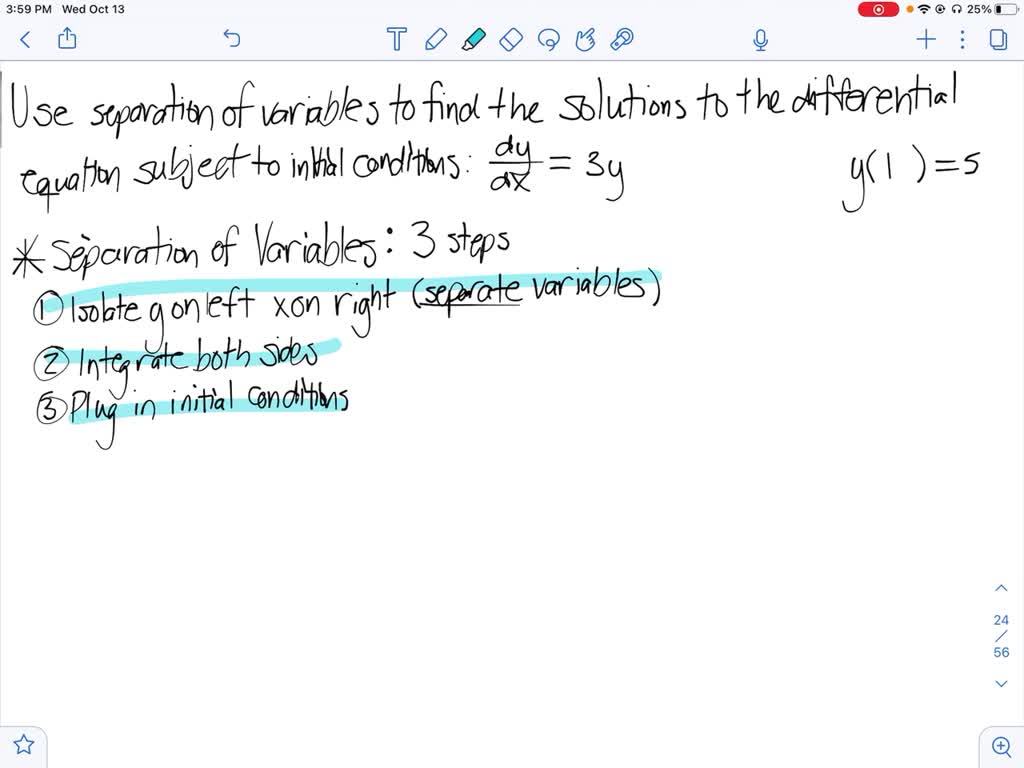 3:59 PM Wed Oct 13 25%
T
Use separation of variables to find the solutions to the differential
equation subject to initial conditions: dy/dx = 3y y(1) = 5
* Separation of Variables: 3 steps
① Isolate y on left x on right (separate variables)
② Integrate both sides
③ Plug in initial conditions
24
/
56